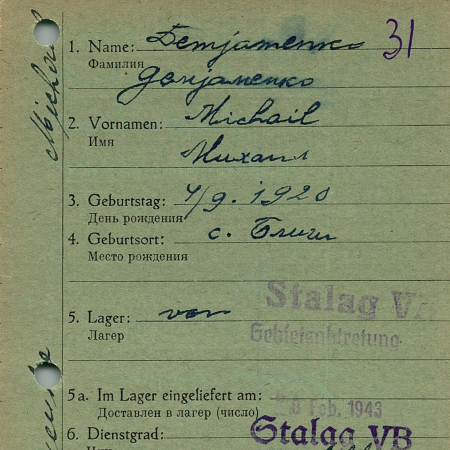 31
1. Name: Demjamenko
Фамилия
Демјаменко
2. Vornamen: Michail
Имя
Михаил
3. Geburtstag: 4/9. 1920
День рождения
4. Geburtsort: с.
Место рождения
5. Lager: von Stalag V
Лагер Gebietsabtretung
5a. Im Lager eingeliefert am:
Доставлен в лагер (число) 8 Feb. 1943
6. Dienstgrad: Stalag VB